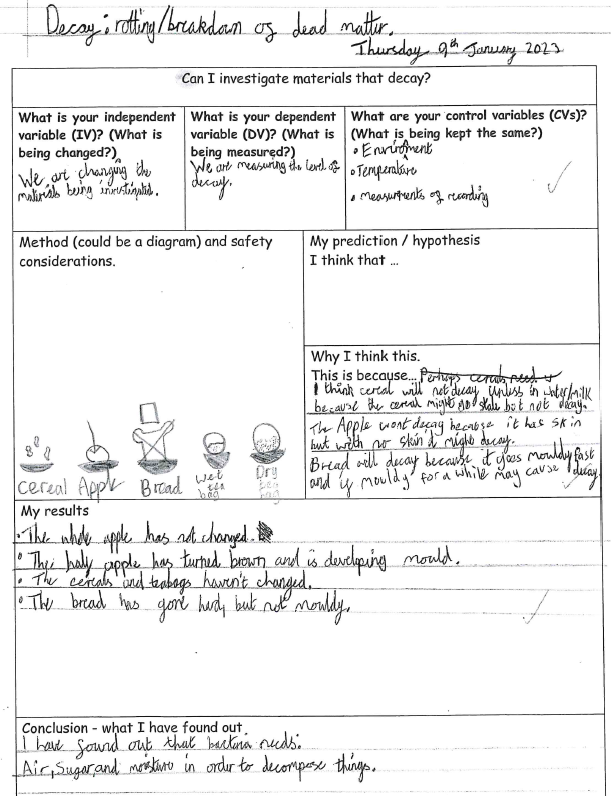 Decay: rotting/breakdown of dead matter.
Thursday 9th January 2023
Can I investigate materials that decay?
What is your independent variable (IV)? (What is being changed?)
We are changing the
materials being investigated.
What is your dependent variable (DV)? (What is being measured?)
We are measuring the level of
decay.
What are your control variables (CVs)?
(What is being kept the same?)
• Enviroment
• Temperature
• measurments of recording
Method (could be a diagram) and safety
considerations.
cereal
Apple
Bread
Wet
tea
bag
Dry
tea
bag
My prediction / hypothesis
I think that ...
Why I think this.
This is because... Perhaps cereals need
I think cereal will not decay unless in water/milk
because the cereal might go stale but not decay.
The Apple wont decay because it has skin
but with no skin it might decay.
Bread will decay because it goes mouldy fast
and if mouldy for a while may cause decay
My results
• The whole apple has not changed.
• The half apple has turned brown and is developing mould.
• The cereals and teabags haven't changed.
• The bread has gone hard, but not mouldy.
Conclusion - what I have found out
I have found out that bacteria needs:
Air, Sugar, and moisture in order to decompose things.